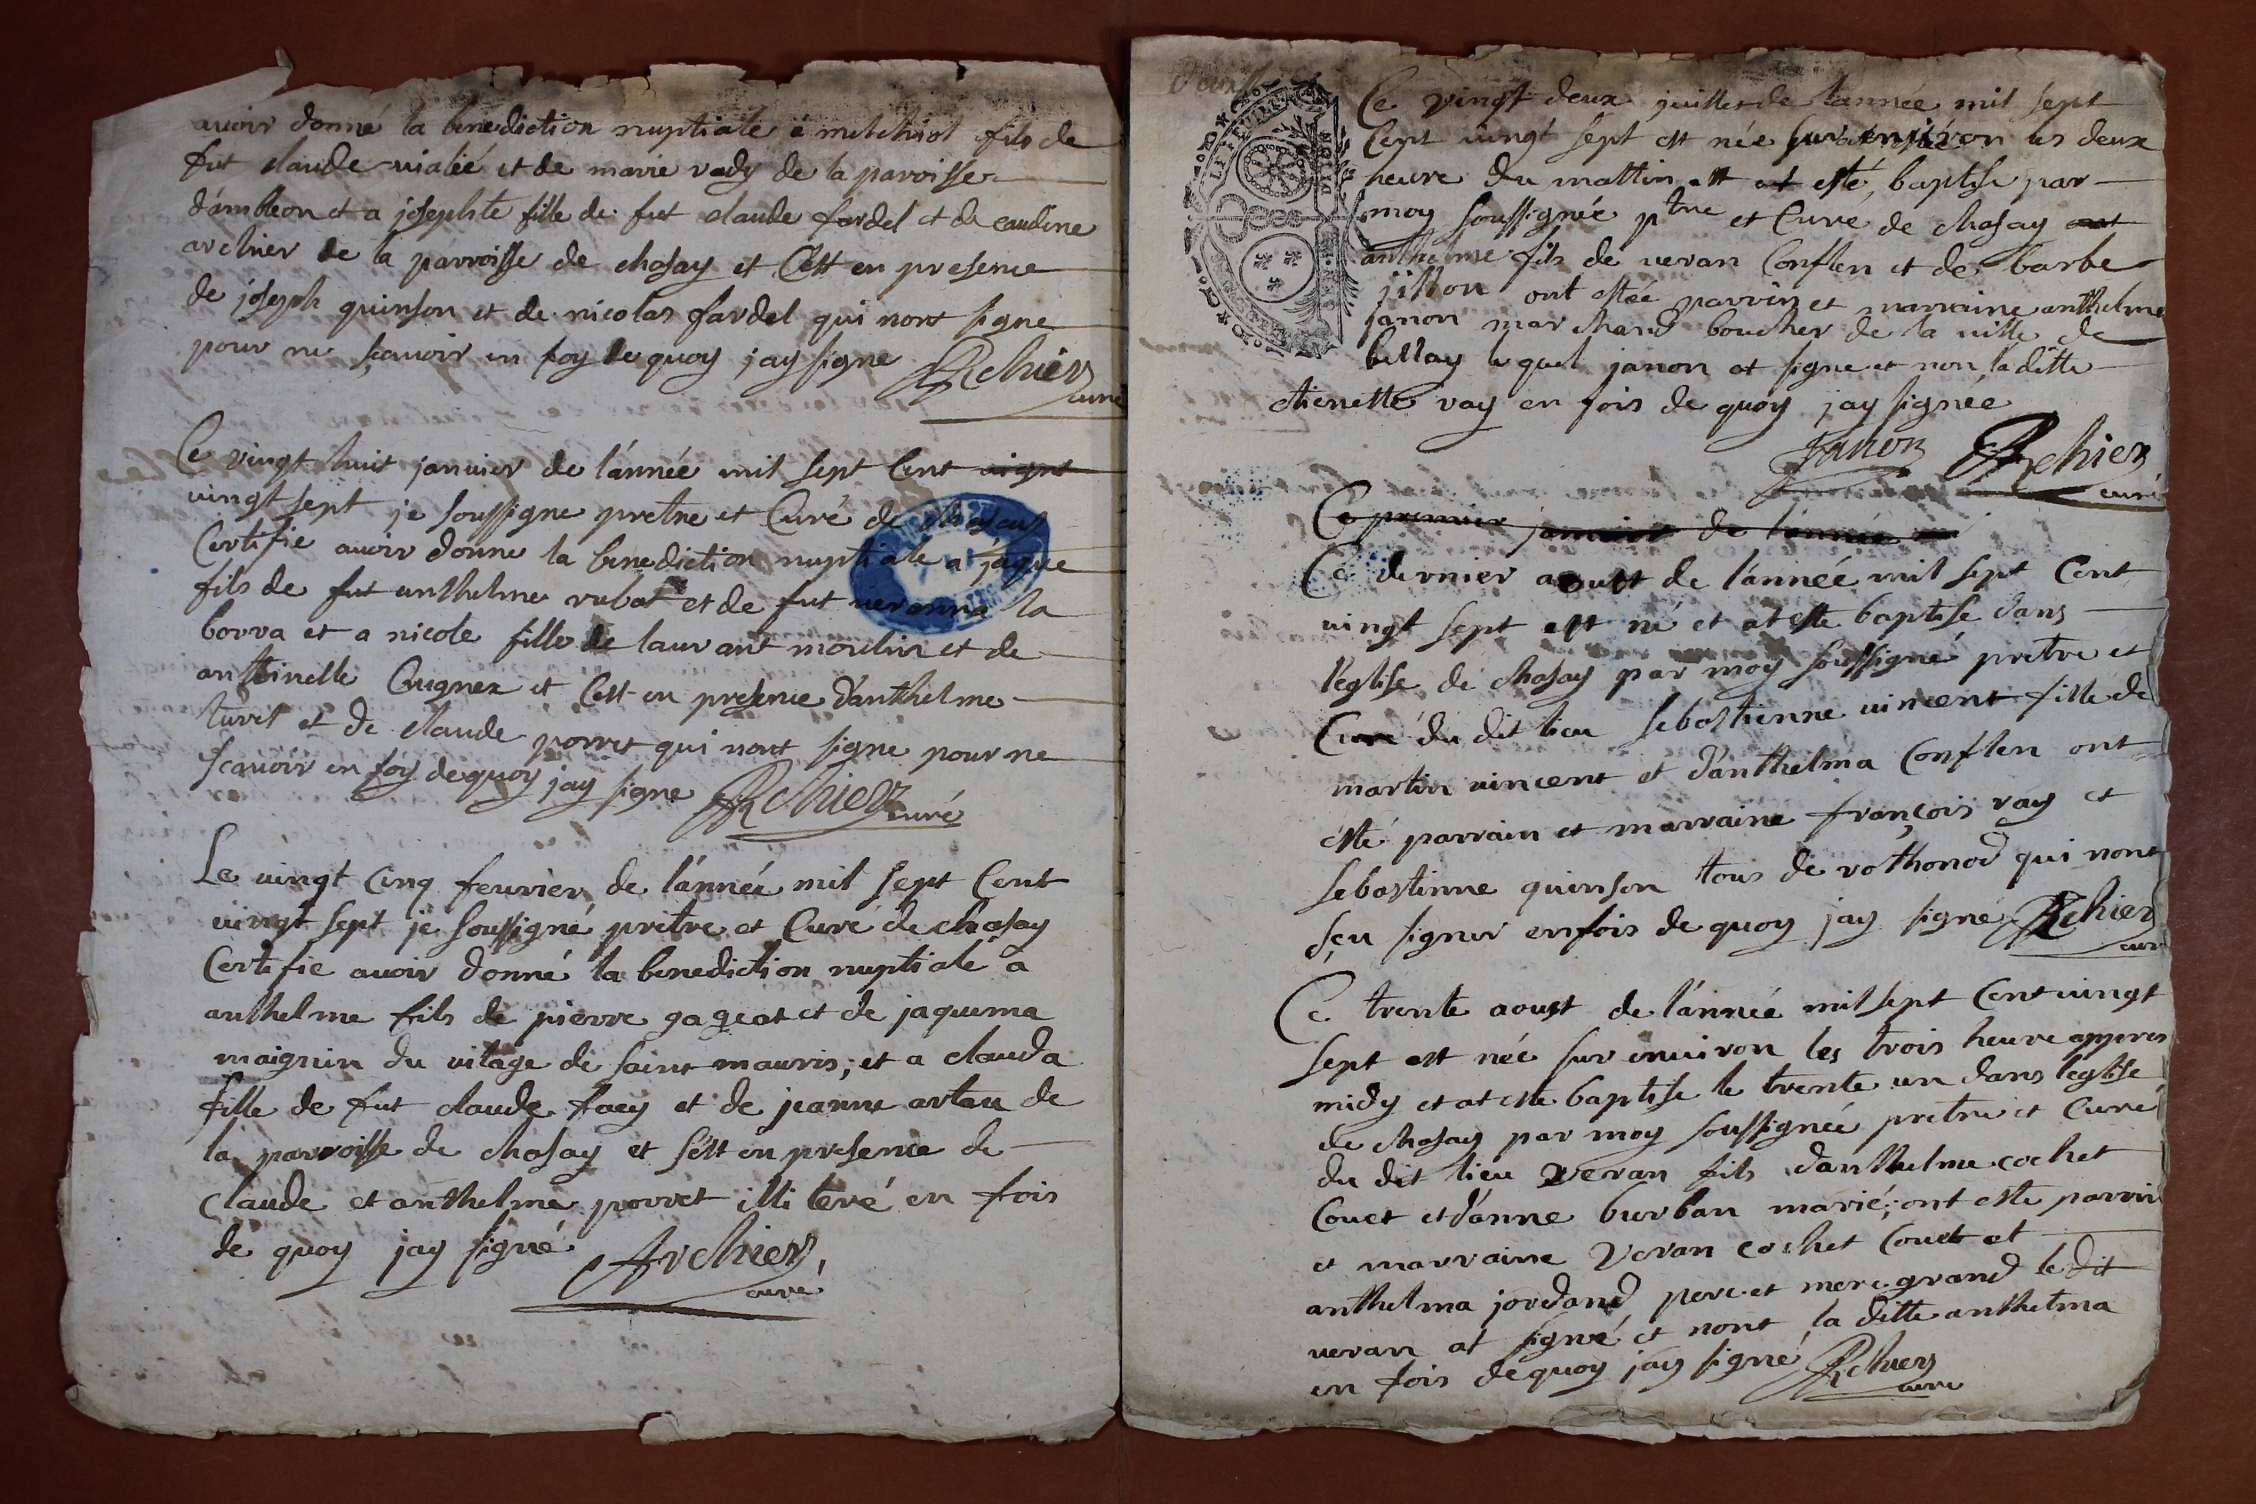 avoir donné la benediction nuptiale a melchiol fils de
fut claude vialié et de marie vady de la paroisse
d'ambleon et a josephte fille de fut claude fardel et de caudine
archier de la parroisse de chosay et C'est en presence
de joseph quinson et de nicolas fardel qui nont signe
pour ne scavoir en foy de quoy jay signe Archier
curé
Ce vingt huit janvier de l'année mil sept Cent vignt
vingt sept je soussigne pretre et Curé de chosay
Certifie avoir donne la benediction nuptiale a jaque
fils de fut anthelme rubat et de fut veranna la
borra et a nicole fille de laurant moulin et de
anthinelle Cugnez et C'est en presence d'anthelme
turel et de claude porret qui nont signe pour ne
scavoir en foy de quoy jay signe Archier
curé
Le vingt Cinq fevrier de l'année mil sept Cent
vingt sept je soussigné pretre et Curé de chosay
Certifie avoir donné la benediction nuptiale a
anthelme fils de pierre gageat et de jaquema
maignin du vilage de saint mauris; et a clauda
fille de fut claude faey et de jeanne artau de
la parroisse de chosay et s'est en presence de
claude et anthelme porret illi teré en fois
de quoy jay signé Archier
curé
Ce vingt deux juillet de l'année mil sept
Cent vingt sept est née sur environ les deux
heure du mattin et at esté baptise par
moy soussignée ptre et Curé de chosay
anthelme fils de veran Conflen et de barbe
jillon ont estée parrin et marraine anthelme
janon marchand boucher de la ville de
bellay lequel janon at signe et non la ditte
etienette vay en fois de quoy jay signée
Janon Archier
curé
Ce premier janvier de l'année
Ce dernier aoust de l'année mil sept Cent
vingt sept est né et at este baptise dans
l'eglise de chosay par moy soussigné pretre et
Curé du dit lieu sebastienne vincent fille de
martin vincent et d'anthelma Conflen ont
esté parrain et marraine françois vay et
sebastinne quinson tous de rothonod qui nont
sçu signer en fois de quoy jay signé Archier
curé
Ce trente aoust de l'année mil sept Cent vingt
sept est née sur environ les trois heure appres
midy et at este baptise le trente un dans l'eglise
de chosay par moy soussignée pretre et Curé
du dit lieu veran fils d'anthelme cochet
Couet et d'anne burban marié; ont este parrin
et marraine veran cochet Couet et
anthelma jordand pere et mere grand le dit
veran at signé et nont la ditte anthelma
en fois de quoy jay signé Archier
curé